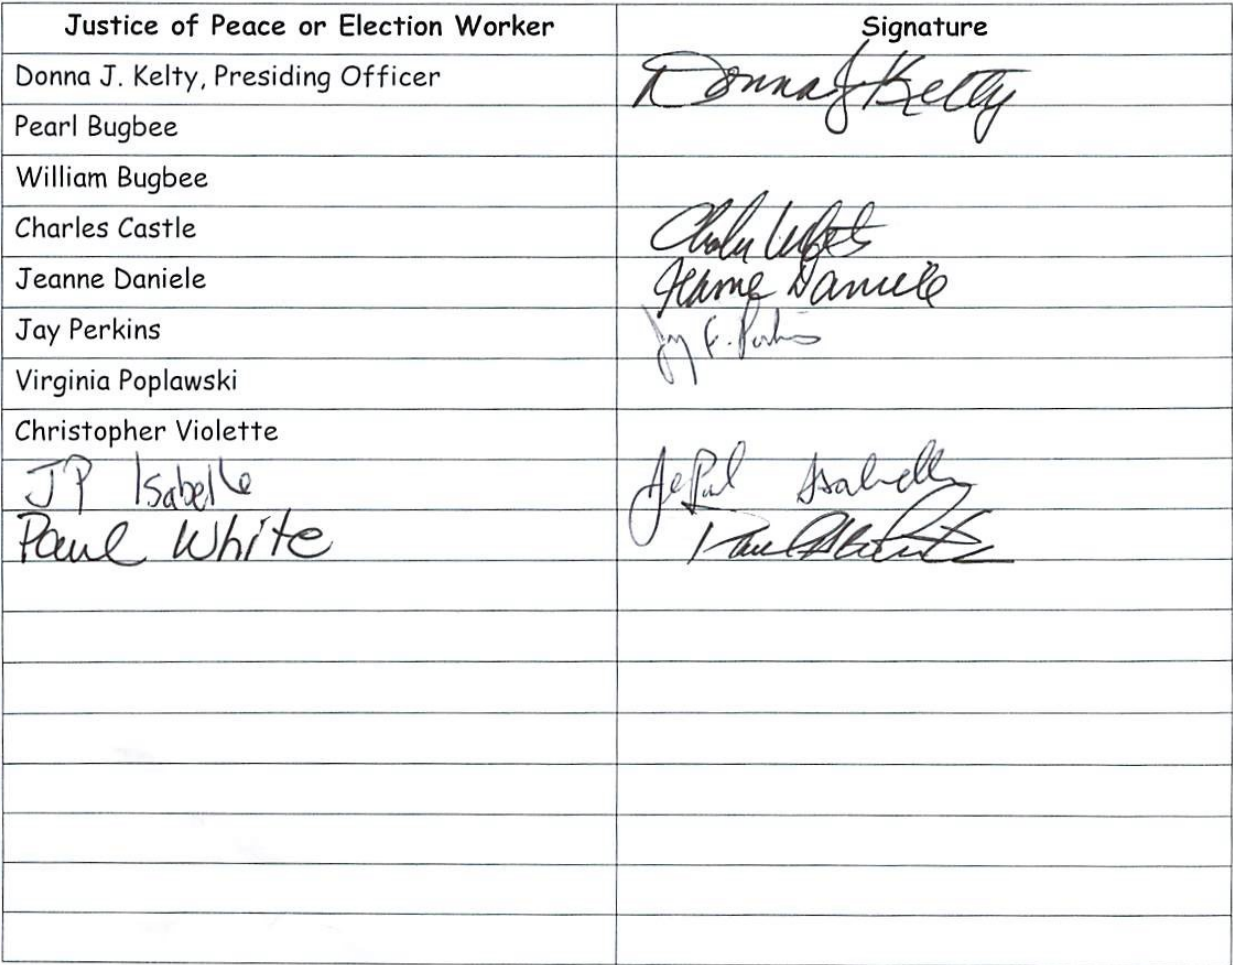 Justice of Peace or Election Worker Signature
Donna J. Kelty, Presiding Officer Donna J Kelty
Pearl Bugbee
William Bugbee
Charles Castle
Jeanne Daniele Jeanne Daniele
Jay Perkins Jay E. Perkins
Virginia Poplawski
Christopher Violette
JP Isabelle Isabelle
Paul White Paul White